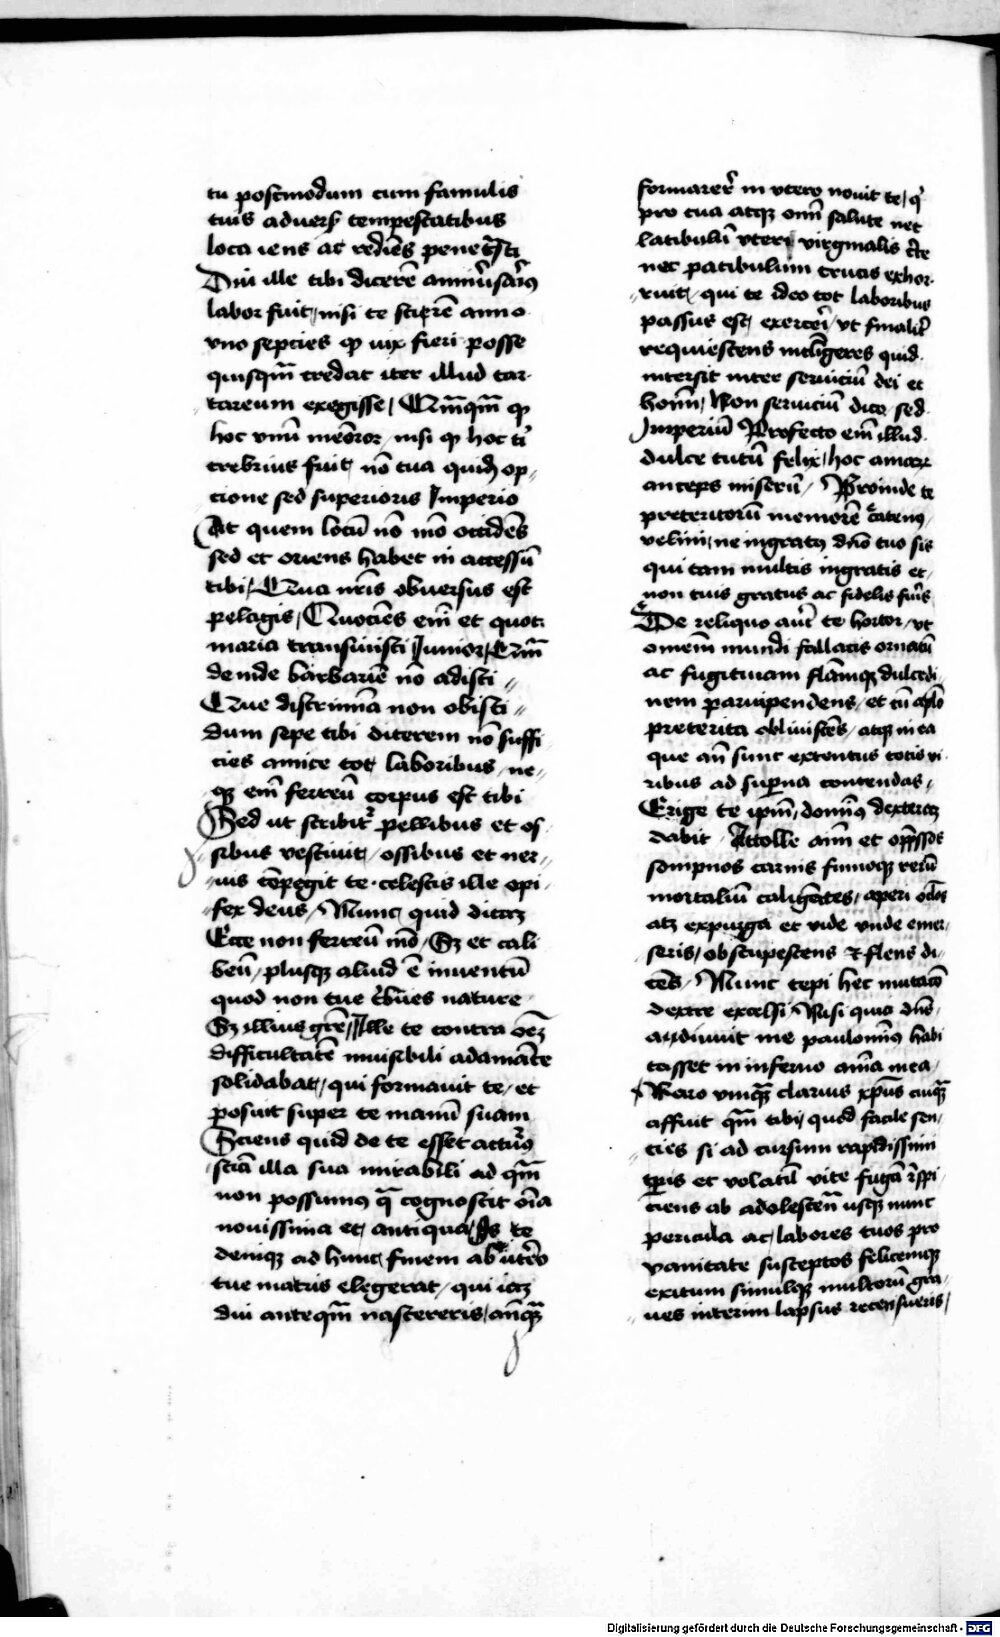 tu postmodum cum famulis
tuis advers᷑ tempestatibus
loca iens ac rediēs
Diu ille tibi dicerē
labor fuit / nisi te scirē anno
vno septies ꝙ uix fieri posse
quisqm̄ credat iter illud tar-
tareum exegisse / Qm̄qm̄ ꝙ
hoc vnū meōror / nisi ꝙ hoc ti᷑
crebrius fuit / nō tua quidē op-
cione sed superioris Imperio
At quem locū nō mō occidēs
sed et oriens habet in accessū
tibi / Qua nr̄is obuersus est
pelagis / Quociēs em̄ et quot
maria transiuisti Iunior / Qm̄
deinde barbariē nō adisti //
Que discrimīa non obisti //
dum sepe tibi dicerem nō suffi
cies amice tot laboribus / ne-
qꝫ em̄ ferreū corpus est tibi
Sed ut scribit᷑ pellibus et os
sibus vestiuit / ossibus et ner-
uis cōpegit te · celestis ille opi
fex deus / Nunc quid dicaꝫ
Ecce non ferreū mō / Sꝫ et cali
beū / plusqꝫ aliud ē inuentū
quod non tue
Sꝫ illius grē / Ille te contra oēꝫ
difficultatē inuisibili adamāte
solidabat / qui formauit te / et
posuit super te manū suam
Sciens quid de te esset actur᷑
sciā illa sua mirabili ad qm̄
non possumus q̄ cognoscit oīa
nouissima et antiqua / Is te
deniqꝫ ad hunc finem ab vtero
tue matris elegerat / qui itaꝫ
diu anteqm̄ nascereris / anqꝫ
formarer᷑ in vtero nouit te / q᷑
pro tua atqꝫ om̄ salute nec
latibulū vteri virginalis
nec patibulum crucis exhor-
ruit / qui te ideo tot laboribus
passus est / exerceri / vt finalit᷑
requiescens intlligeres quid
intersit inter seruiciū dei et
hoīm / Non seruiciū dico / sed
Imperiū Profecto em̄ illud
dulce tutū felix / hoc amarꝫ
anceps miserū / Proinde te
preteritorū memorē
velim / ne ingratꝰ dn̄o tuo sis
qui tam multis ingratis et
non tuis gratus ac fidelis fuis
De reliquo aut᷑ te hortor / vt
omnem mundi fallacis ornatū
ac fugitiuam flāmiqꝫ dulcedi-
nem paruipendens / et cū aplō
preterita obliuiscēs / atqꝫ in ea
que an̄ sunt extentus totis vi
ribus ad superna contendas /
Erige te ipm̄ / dominꝰ dexteraꝫ
dabit / Attolle anim̄ et opp̄ssos
sompnos carnis fumoqꝫ rerū
mortaliū caligātes / aperi oclos
atqꝫ expurga et vide vnde emer-
seris / obstupescens et flens di-
cens / Nunc cepi hec mutacō
dextre excelsi / Nisi quia dn̄s
audiuit me paulominꝰ habi
tasset in inferno anīa mea /
Raro vmqꝫ clarius xp̄us cuiqꝫ
affuit qm̄ tibi / quod facile sen-
cies si ad cursum rapidissimi
tp̄ris et volatil vite fugā
ciens ab adolescen̄ usqꝫ nunc
pericula ac labores tuos pro
vanitate susceptos felicemqꝫ
exitum simulqꝫ multorū gra-
ues interim lapsus recensueris /
Digitalisierung gefördert durch die Deutsche Forschungsgemeinschaft - DFG